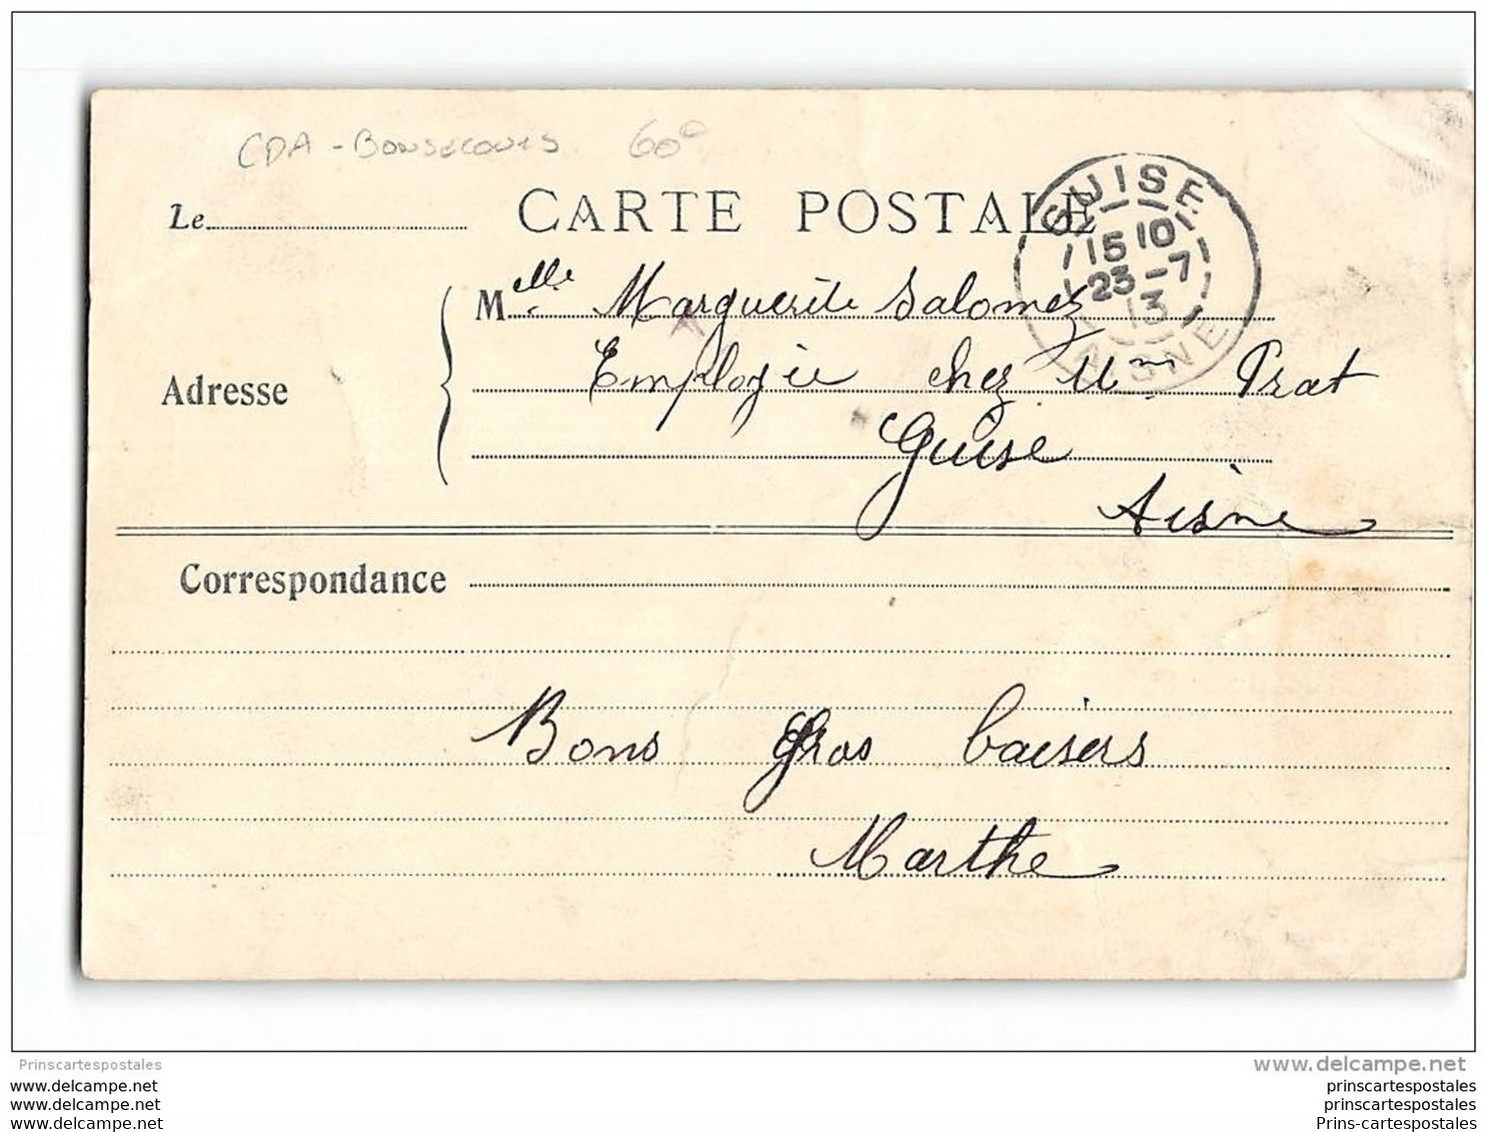 CDA - BONSECOURS 60°
Le
CARTE POSTALE
GUISE
15 10
23 - 7
13
AISNE
Adresse
Melle Marguerite Salomez
Employée chez Mm Prat
Guise
Aisne
Correspondance
Bons Gros baisers
Marthe
Prinscartespostales
www.delcampe.net
www.delcampe.net
www.delcampe.net
www.delcampe.net
prinscartespostales
prinscartespostales
Prins-cartespostales